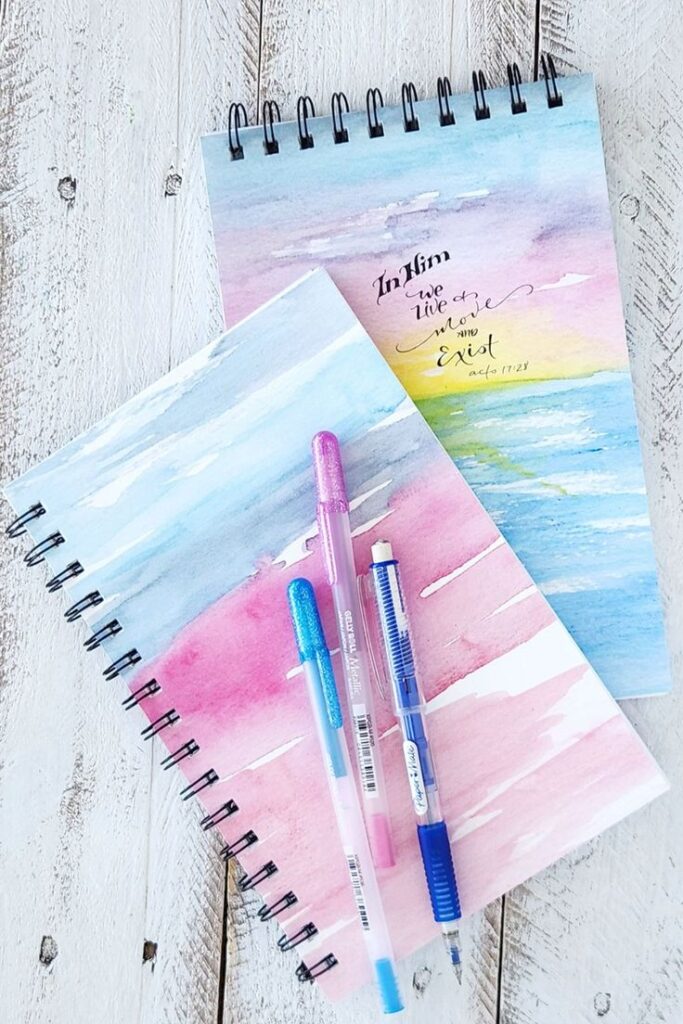 In Him
we
Live &
move
AND
Exist
acts 17:28
GELLY ROLL Metallic
Paper Mate